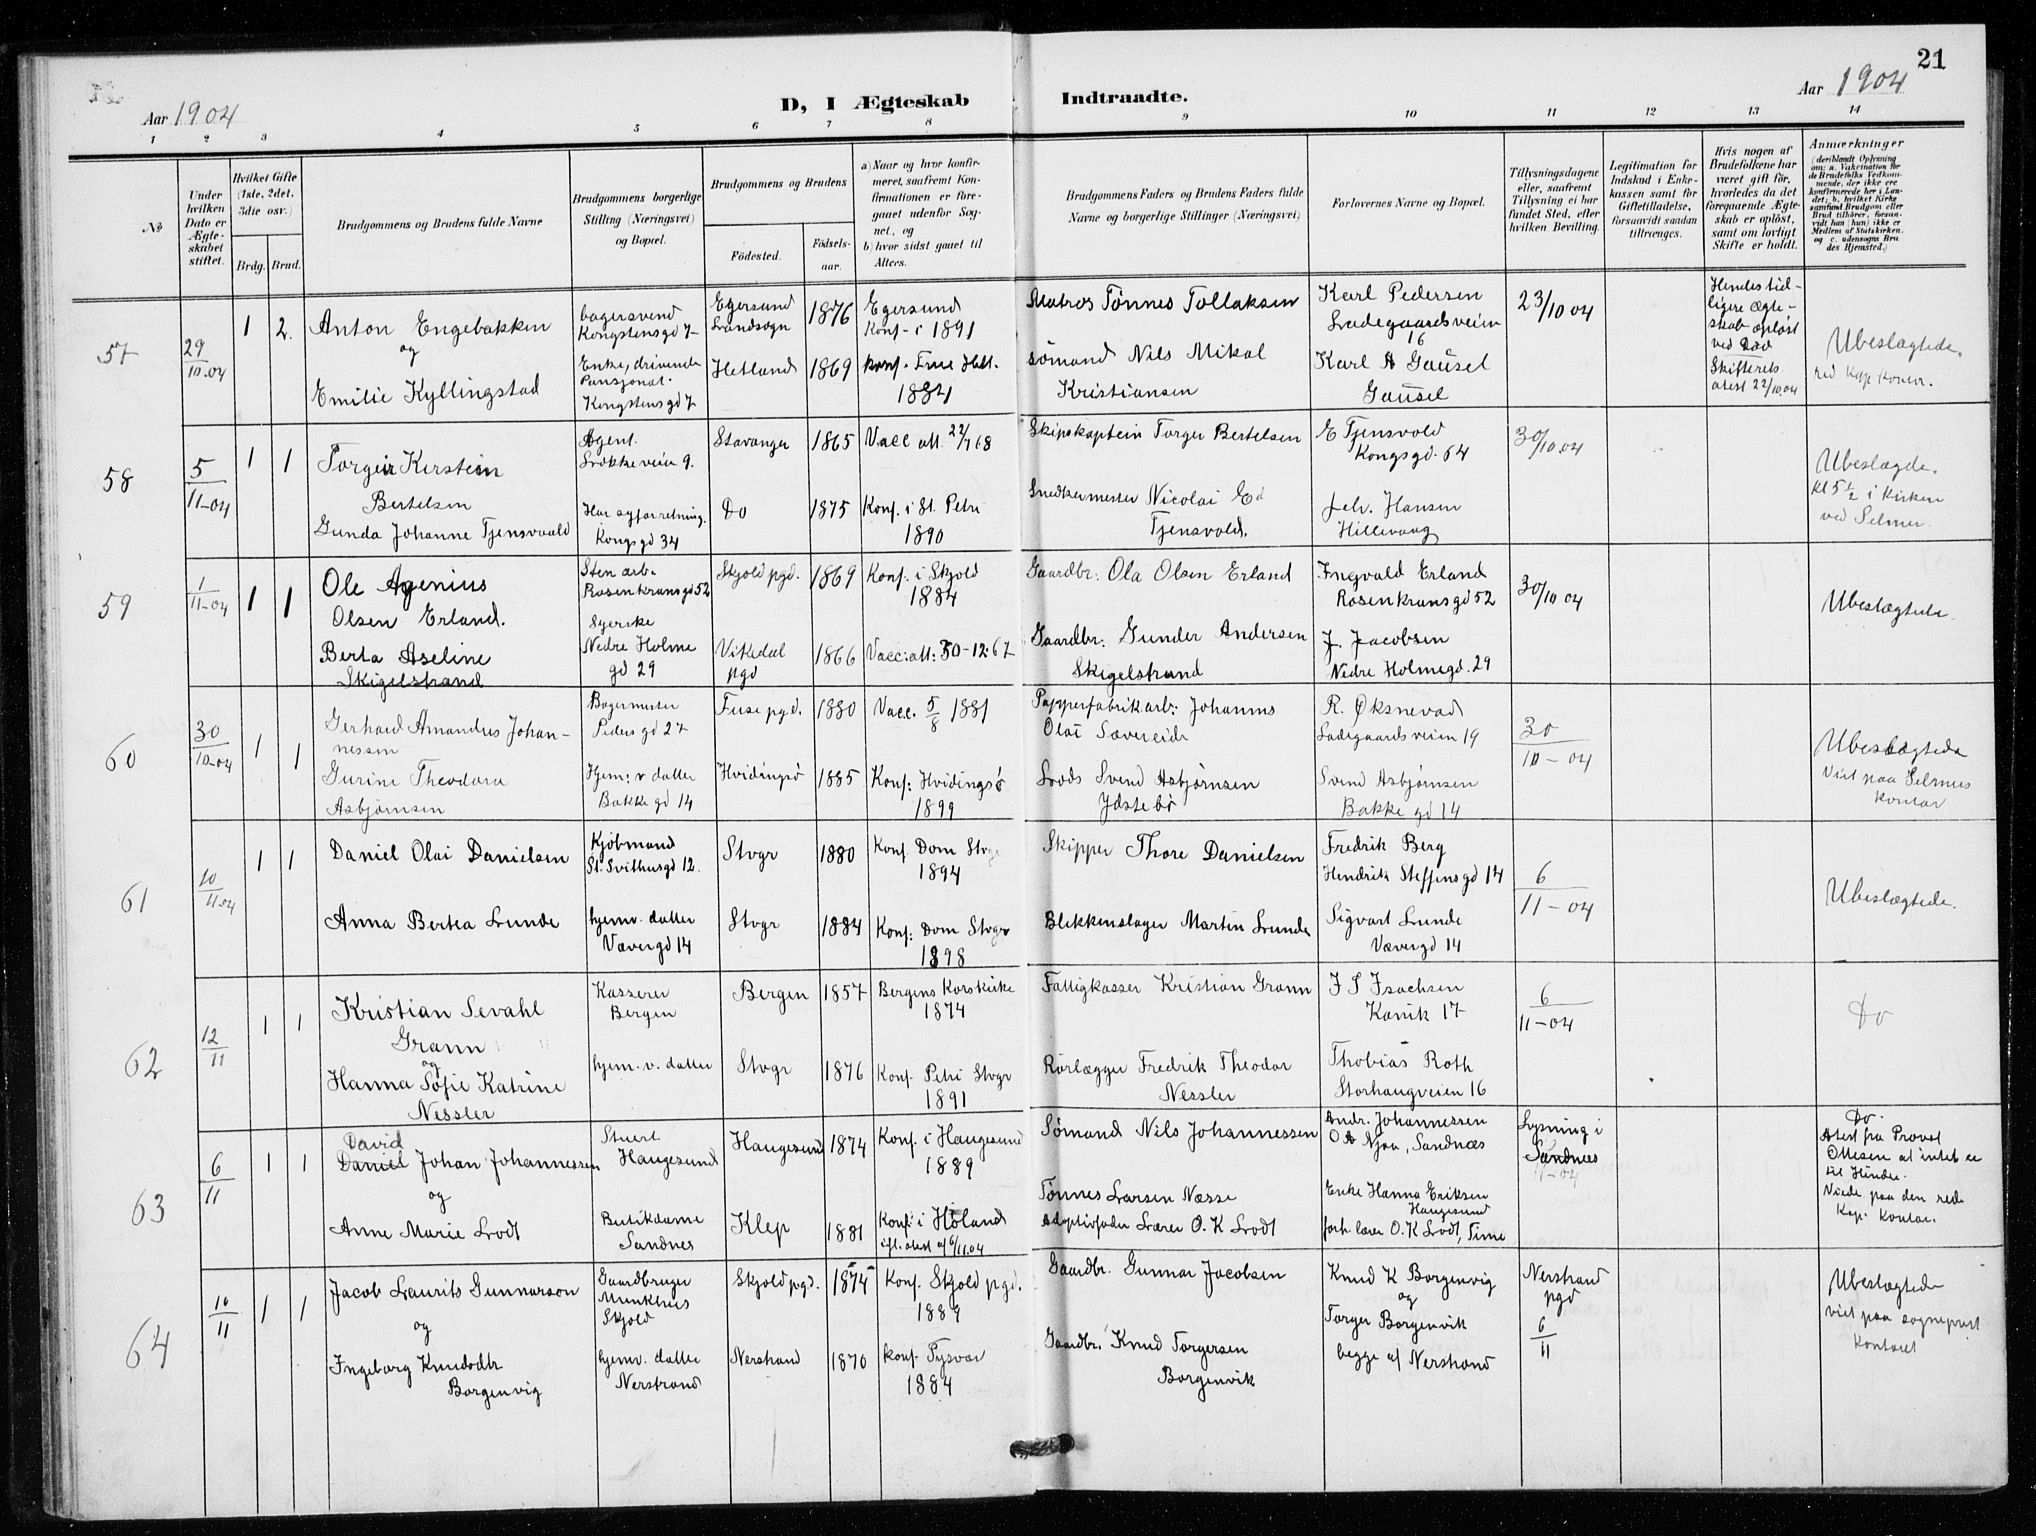 21
Aar 1904
D, I Ægteskab Indtraadte.
Aar 1904
1 2 3 4 5 6 7 8 9 10 11 12 13 14
No
Under hvilken Dato er Ægteskabet stiftet.
Hvilket Gifte (1ste, 2det, 3die osv.)
Brdg. Brud.
Brudgommens og Brudens fulde Navne
Brudgommens borgerlige Stilling (Næringsvei) og Bopæl.
Brudgommens og Brudens
Födested.
Födsels-aar.
a) Naar og hvor konfirmeret, saafremt Konfirmationen er foregaaet udenfor Sognet, og
b) hvor sidst gaaet til Alters.
Brudgommens Faders og Brudens Faders fulde Navne og borgerlige Stillinger (Næringsvei)
Forlovernes Navne og Bopæl.
Tillysningsdagene eller, saafremt Tillysning ei har fundet Sted, efter hvilken Bevilling.
Legitimation for Indskud i Enkekassen samt for Giftetilladelse, forsaavidt saadan tiltrænges.
Hvis nogen af Brudefolkene har været gift før, hvorledes da det foregaaende Ægteskab er opløst, samt om lovligt Skifte er holdt.
Anmærkninger
(deriblandt Oplysning om: a. Vakcination for de Brudefolks Vedkommende, der ikke ere konfirmerede her i Landet; b. hvilket Kirkesamfund Brudgom eller Brud tilhører, forsaavidt han (hun) ikke er Medlem af Statskirken, og c. udensogns Brudes Hjemsted.)
57
29/10.04
1 2.
Anton Engebakken
og
Emilie Kyllingstad
bagersvend
Kongstensgd 7
Enke, drivende
Pansjonat.
Kongstensgd 7
Egersund
Landsogn
Hetland
1876
1869
Egersund
Konf. i 1891
konf. Frue Hetl.
1884
Matros Tönnes Tollaksen
sömand Nils Mikal
Kristiansen
Karl Pedersen
Ladegaardsveien
16
Karl A Gausel
Gausel
23/10 04
Hendes tid-
ligere ægte-
skab opløst
ved Død
Skifterets
attest 22/10.04
Ubeslægtede.
58
5/11-04
1 1
Torgeir Kerstein
Bertelsen
Gunda Johanne Tjensvoold
Agent.
Løkkeveien 9.
Har syforretning.
Kongsgd 34
Stavanger
Do
1865
1875
Vacc att. 22/7 68
Konf. i St. Petri
1890
Skipskaptein Torger Bertelsen
Snedkermester Nicolai Ed
Tjensvold.
E Tjensvold
Kongsgd. 64
Joh. Hansen
Hillevaag
30/10.04
Ubeslægde.
kl 5 1/2 i kirken
ved Selmer
59
1/11-04
1 1
Ole Agenius
Olsen Erland.
Berta Aseline
Skigelstrand
Sten arb.
Rosenkransgd 52
Syerske
Nedre Holme
gd 29
Skjold pgd.
Vikedal
pgd
1869
1866
Konf. i Skjold
1884
Vacc: att: 30-12: 67
Gaardbr. Ola Olsen Erland
Gaardbr. Gunder Andersen
Skigelstrand
Ingvald Erland
Rosenkransgd 52
J. Jacobsen
Nedre Holmegd. 29
30/10 04
Ubeslægtede
60
30/10-04
1 1
Gerhard Amandus Johan-
nessen
Gurine Theodora
Asbjørnsen
Bagermester
Peders gd 27
Hjem: v datter
Bakke gd 14
Fuse pgd.
Hvidingsö
1880
1885
Vacc. 5/8 1881
Konf: Hvidingsö
1899
Papperfabrikarb: Johannes
Olai Sævereide
Lods Svend Asbjørnsen
Ydstebö
R. Øksnevad
Ladegaardsveien 19
Svend Asbjørnsen
Bakke gd 14
30/10-04
Ubeslægtede
Viet paa Selmers
kontor
61
10/11.04
1 1
Daniel Olai Danielsen
Anna Bertea Lunde
Kjöbmand
St. Svithusgd 12.
hjemv. datter
Vævergd 14
Stvgr
Stvgr
1880
1884
Konf. Dom Stvgr
1894
Konf: Dom Stvgr
1898
Skipper Thore Danielsen
Blikkenslager Martin Lunde
Fredrik Berg
Hendrik Steffensgd 14
Sigvart Lunde
Vævergd 14
6/11-04
Ubeslægtede.
62
12/11
1 1
Kristian Sevahl
Grann
og
Hanna Sofie Katrine
Nessler
Kasserer
Bergen
hjem. v. datter
Bergen
Stvgr
1857
1876
Bergens Korskirke
1874
Konf. Petri Stvgr
1891
Fattigkasser Kristian Grann
Rörlægger Fredrik Theodor
Nessler
I S Isachsen
Kanik 17
Thobias Roth
Storhaugveien 16
6/11-04
Do
63
6/11
1 1
David
Daniel Johan Johannessen
og
Anne Marie Lodt
Stuert
Haugesund
Butikdame
Sandnes
Haugesund
Klep
1874
1881
Konf. i Haugesund
1889
Konf. i Höland
ifl. attest af 6/11.04
Sömand Nils Johannessen
Tönnes Larsen Næsse
Adoptivfader Lærer O. K Lodt
Andr. Johannessen
O A Njaa, Sandnæs
Enke Hanna Eriksen
Haugesund
forh. lærer O. K Lodt, Time
Lysning i
Sandnes
Do.
Atest fra Provst
Ottesen at intet er
til Hinder.
Viede paa den reds
Kap. Kontor.
64
10/11
1 1
Jacob Laurits Gunnarson
og
Ingeborg Knudsdtr
Borgenvig
Gaardbruger
Munkhus
Skjold
hjemv. datter
Nerstrand
Skjold pgd.
Nerstrand
1874
1870
Konf. Skjold pgd.
1889
konf Tysvær
1884
Gaardbr. Gunnar Jacobsen
Gaardbr. Knud Torgersen
Borgenvik
Knud K Borgenvig
og
Torger Borgenvik
begge af Nerstrand
Nerstrand
pgd
6/11
Ubeslægtede
viet paa sogneprest
kontoret